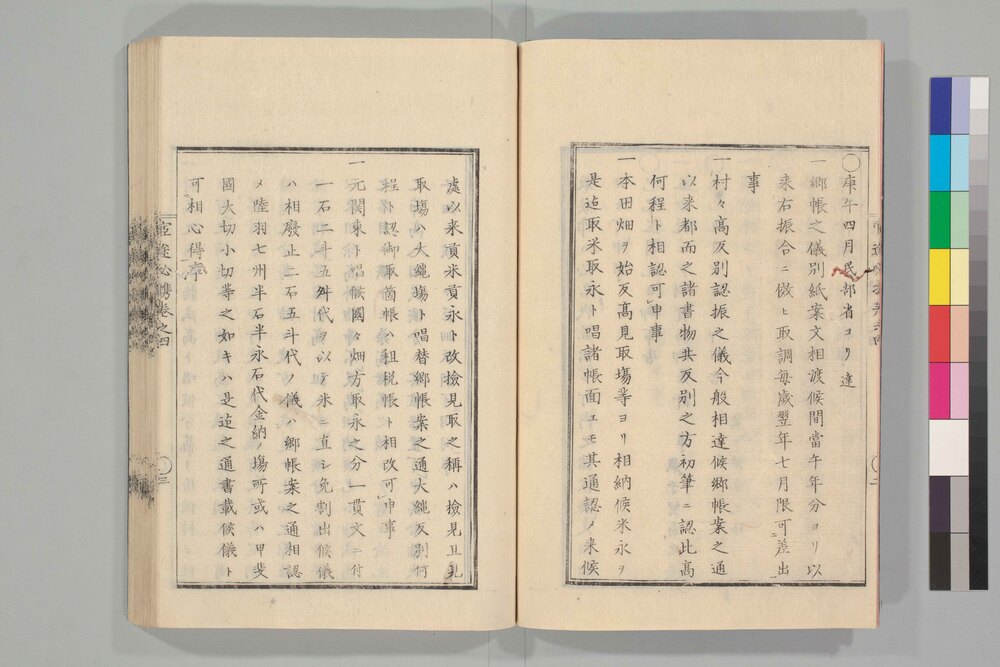 〇庚午四月民部省ヨリ達
一郷帳之儀別紙案文相渡候間當午年分ヨリ以
来右振合ニ傚ヒ取調毎歳翌年七月限可差出
事
一村々髙反別認振之儀今般相達候郷帳案之通
以来都而之諸書物共反別之方初筆ニ認此髙
何程ト相認可申事
一本田畑ヲ始反髙見取塲等ヨリ相納候米永ヲ
是迠取米取永ト唱諸帳面エモ其通認メ来候
處以来貢米貢永ト改撿見取之稱ハ撿見且見
取塲ハ大縄塲ト唱替郷帳案之通大縄反別何
程ト認御取箇帳ハ租税帳ト相改可申事
一元関東ト唱候國々畑方取永之分一貫文ニ付
一石二斗五舛代ヲ以テ米ニ直シ免割出候儀
ハ相廢止二石五斗代ノ儀ハ郷帳案之通相認
メ陸羽七州半石半永石代金納ノ塲所或ハ甲斐
國大切小切等之如キハ是迠之通書載候儀ト
可相心得事
卷之四
〇二
〇三